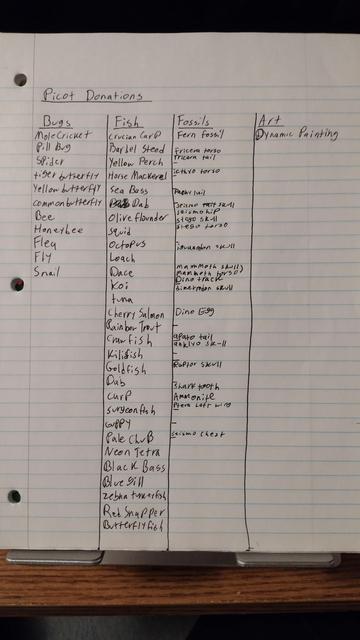 Picot Donations
Bugs
Mole Cricket
Pill Bug
Spider
tiger butterfly
Yellow butterfly
common butterfly
Bee
Honeybee
Flea
Fly
Snail
Fish
Crucian Carp
Barbel Steed
Yellow Perch
Horse Mackerel
Sea Bass
Dab
Olive flounder
Squid
Octopus
Loach
Dace
Koi
tuna
Cherry Salmon
Rainbow Trout
Crawfish
Killifish
Goldfish
Dab
Carp
surgeonfish
Guppy
Pale Chub
Neon Tetra
Black Bass
Bluegill
zebra turkeyfish
Red Snapper
Butterflyfish
Fossils
Fern fossil
tricera torso
tricera tail
icthyo torso
Pachy tail
seismo hip
stego skull
stego torso
iguanodon skull
mammoth skull
mammoth torso
Dino track
dimetrodon skull
Dino Egg
apato tail
ankylo skull
Raptor skull
Shark tooth
Ammonite
Ptera left wing
seismo chest
Art
Dynamic Painting